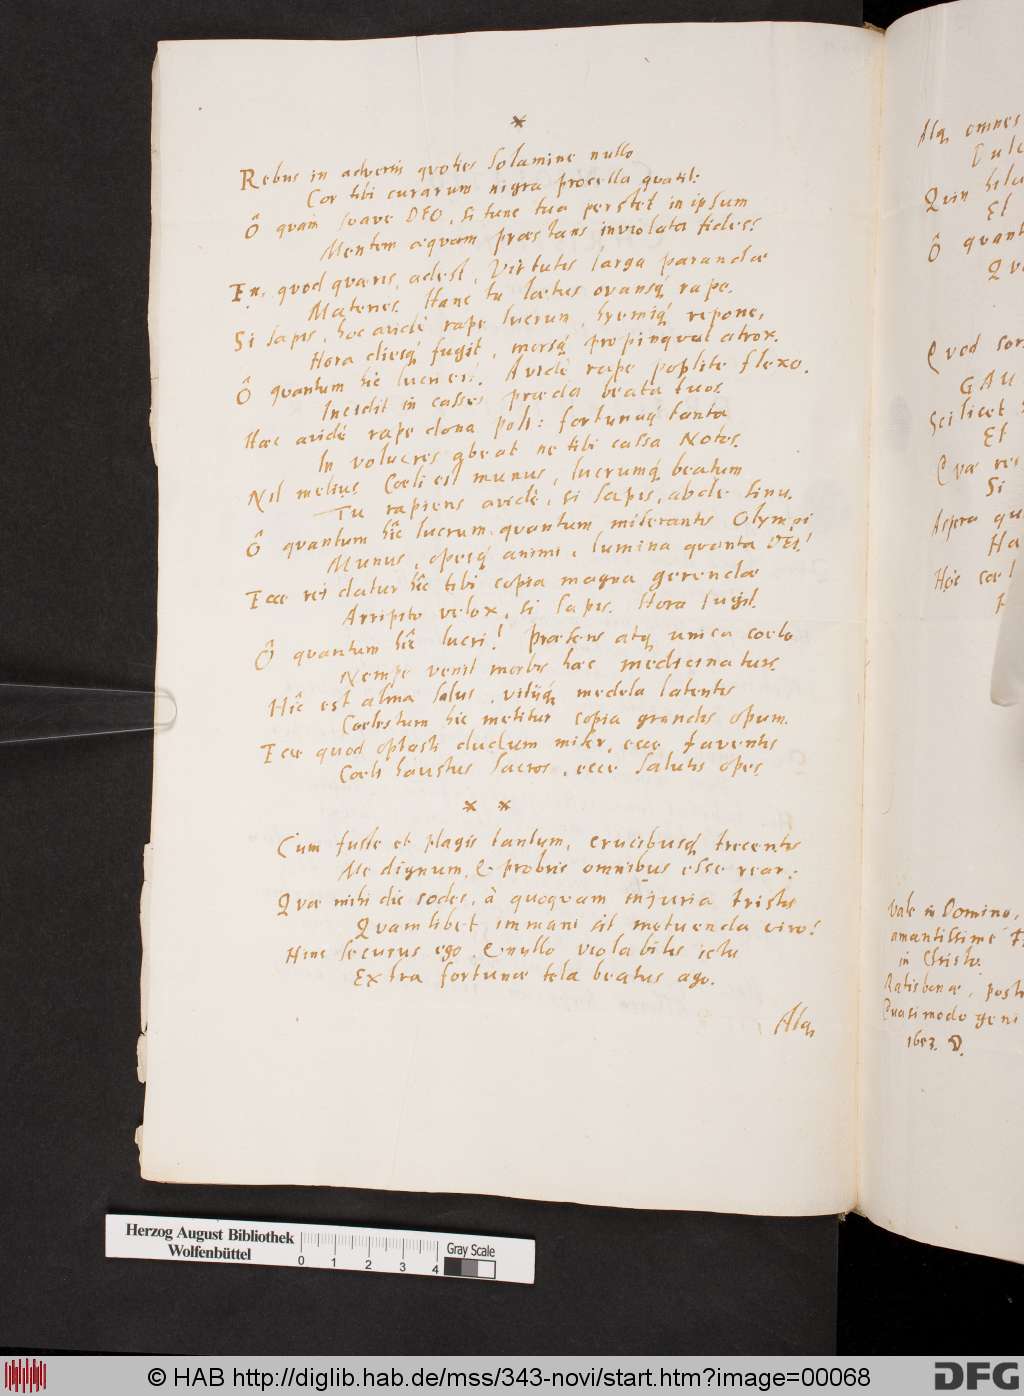 *
Rebus in adversis quoties solamine nullo
Cor tibi curarum nigra procella quatit:
Ô quam suave DEO, si tunc tua perstet in ipsum
Mentem aequam praestans inviolata fides!
En, quod quaeris, adest, Virtutis larga parandae
Materies. Hanc tu laetus ovansq́ rape.
Si sapis, hoc avidè rape lucrum, hyemiq́ repone,
Hora diesq́ fugit, morsq́ propinquat atrox.
Ô quantum hîc lucri est! Avidè rape poplite flexo.
Incidit in casses praeda beata tuos.
Haec avidè rape dona poli: fortunaq́ tanta
In volucres abeat ne tibi cassa Notos.
Nil melius Coeli est munus, lucrumq́ beatum
Tu rapiens avidè, si sapis, abde sinu.
Ô quantum hîc lucrum, quantum miserantis Olympi
Munus, opesq́ animi, lumina quanta DEI!
Ecce rei datur hîc tibi copia magna gerendae
Arripito velox, si sapis. Hora fugit.
Ô quantum hîc lucri! Praesens atq, unica coelo
Nempe venit morbis haec medicina tuis.
Hîc est alma salus, vitijq́ medela latentis
Coelestum hic metitur copia grandis opum.
Ecce quod optasti dudum miser, ecce faventis
Coeli haustus sacros, ecce salutis opes.
* *
Cum fuste et plagis tantum, crucibusq́ trecentis
Me dignum, & probris omnibus esse rear,
Quae mihi dic sodes, à quoquam injuria tristis
Quamlibet immani sit metuenda viro!
Hinc securus ego, & nullo violabilis ictu
Extra fortunae tela beatus ago.
Atq,
Atq, omnes
Quin
Et
Ô quant
Quod
GAU
Scilicet
Et
Quae rei
Si
Aspera qu
Ha
Hic cael
Vale in Domino,
amantissime
in Christo.
Ratisbonae, post
Quasimodo geni
Herzog August Bibliothek
Wolfenbüttel
0 1 2 3 4
Gray Scale
© HAB http://diglib.hab.de/mss/343-novi/start.htm?image=00068
DFG